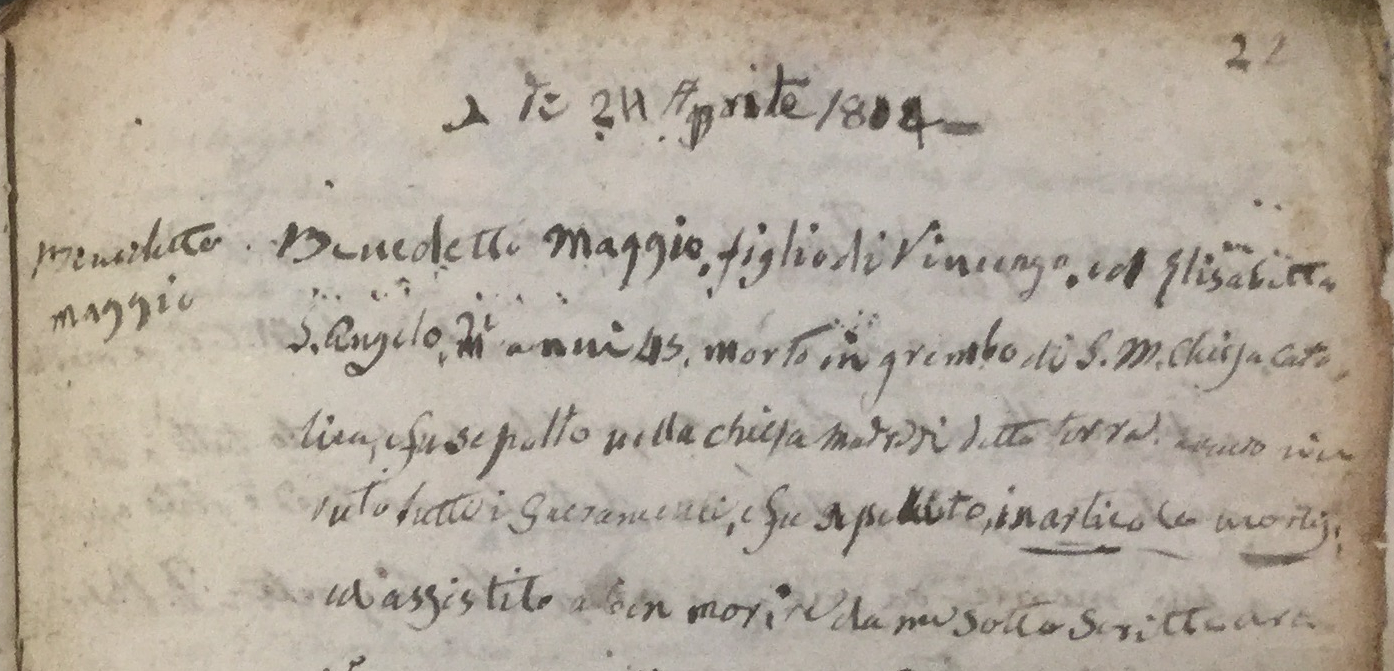 22
A dì 24 Aprile 1804
Benedetto Maggio
Benedetto Maggio, figlio di Vincenzo, ed Elisabetta
S. Angelo, di anni 45. morto in grembo di S. M. Chiesa Cato
lica, e fu sepolto nella chiesa madre di detta terra. avendo rice
vuto tutti i Sacramenti, e fu in articolo mortis,
ed assistito a ben morire da me sotto Scritto